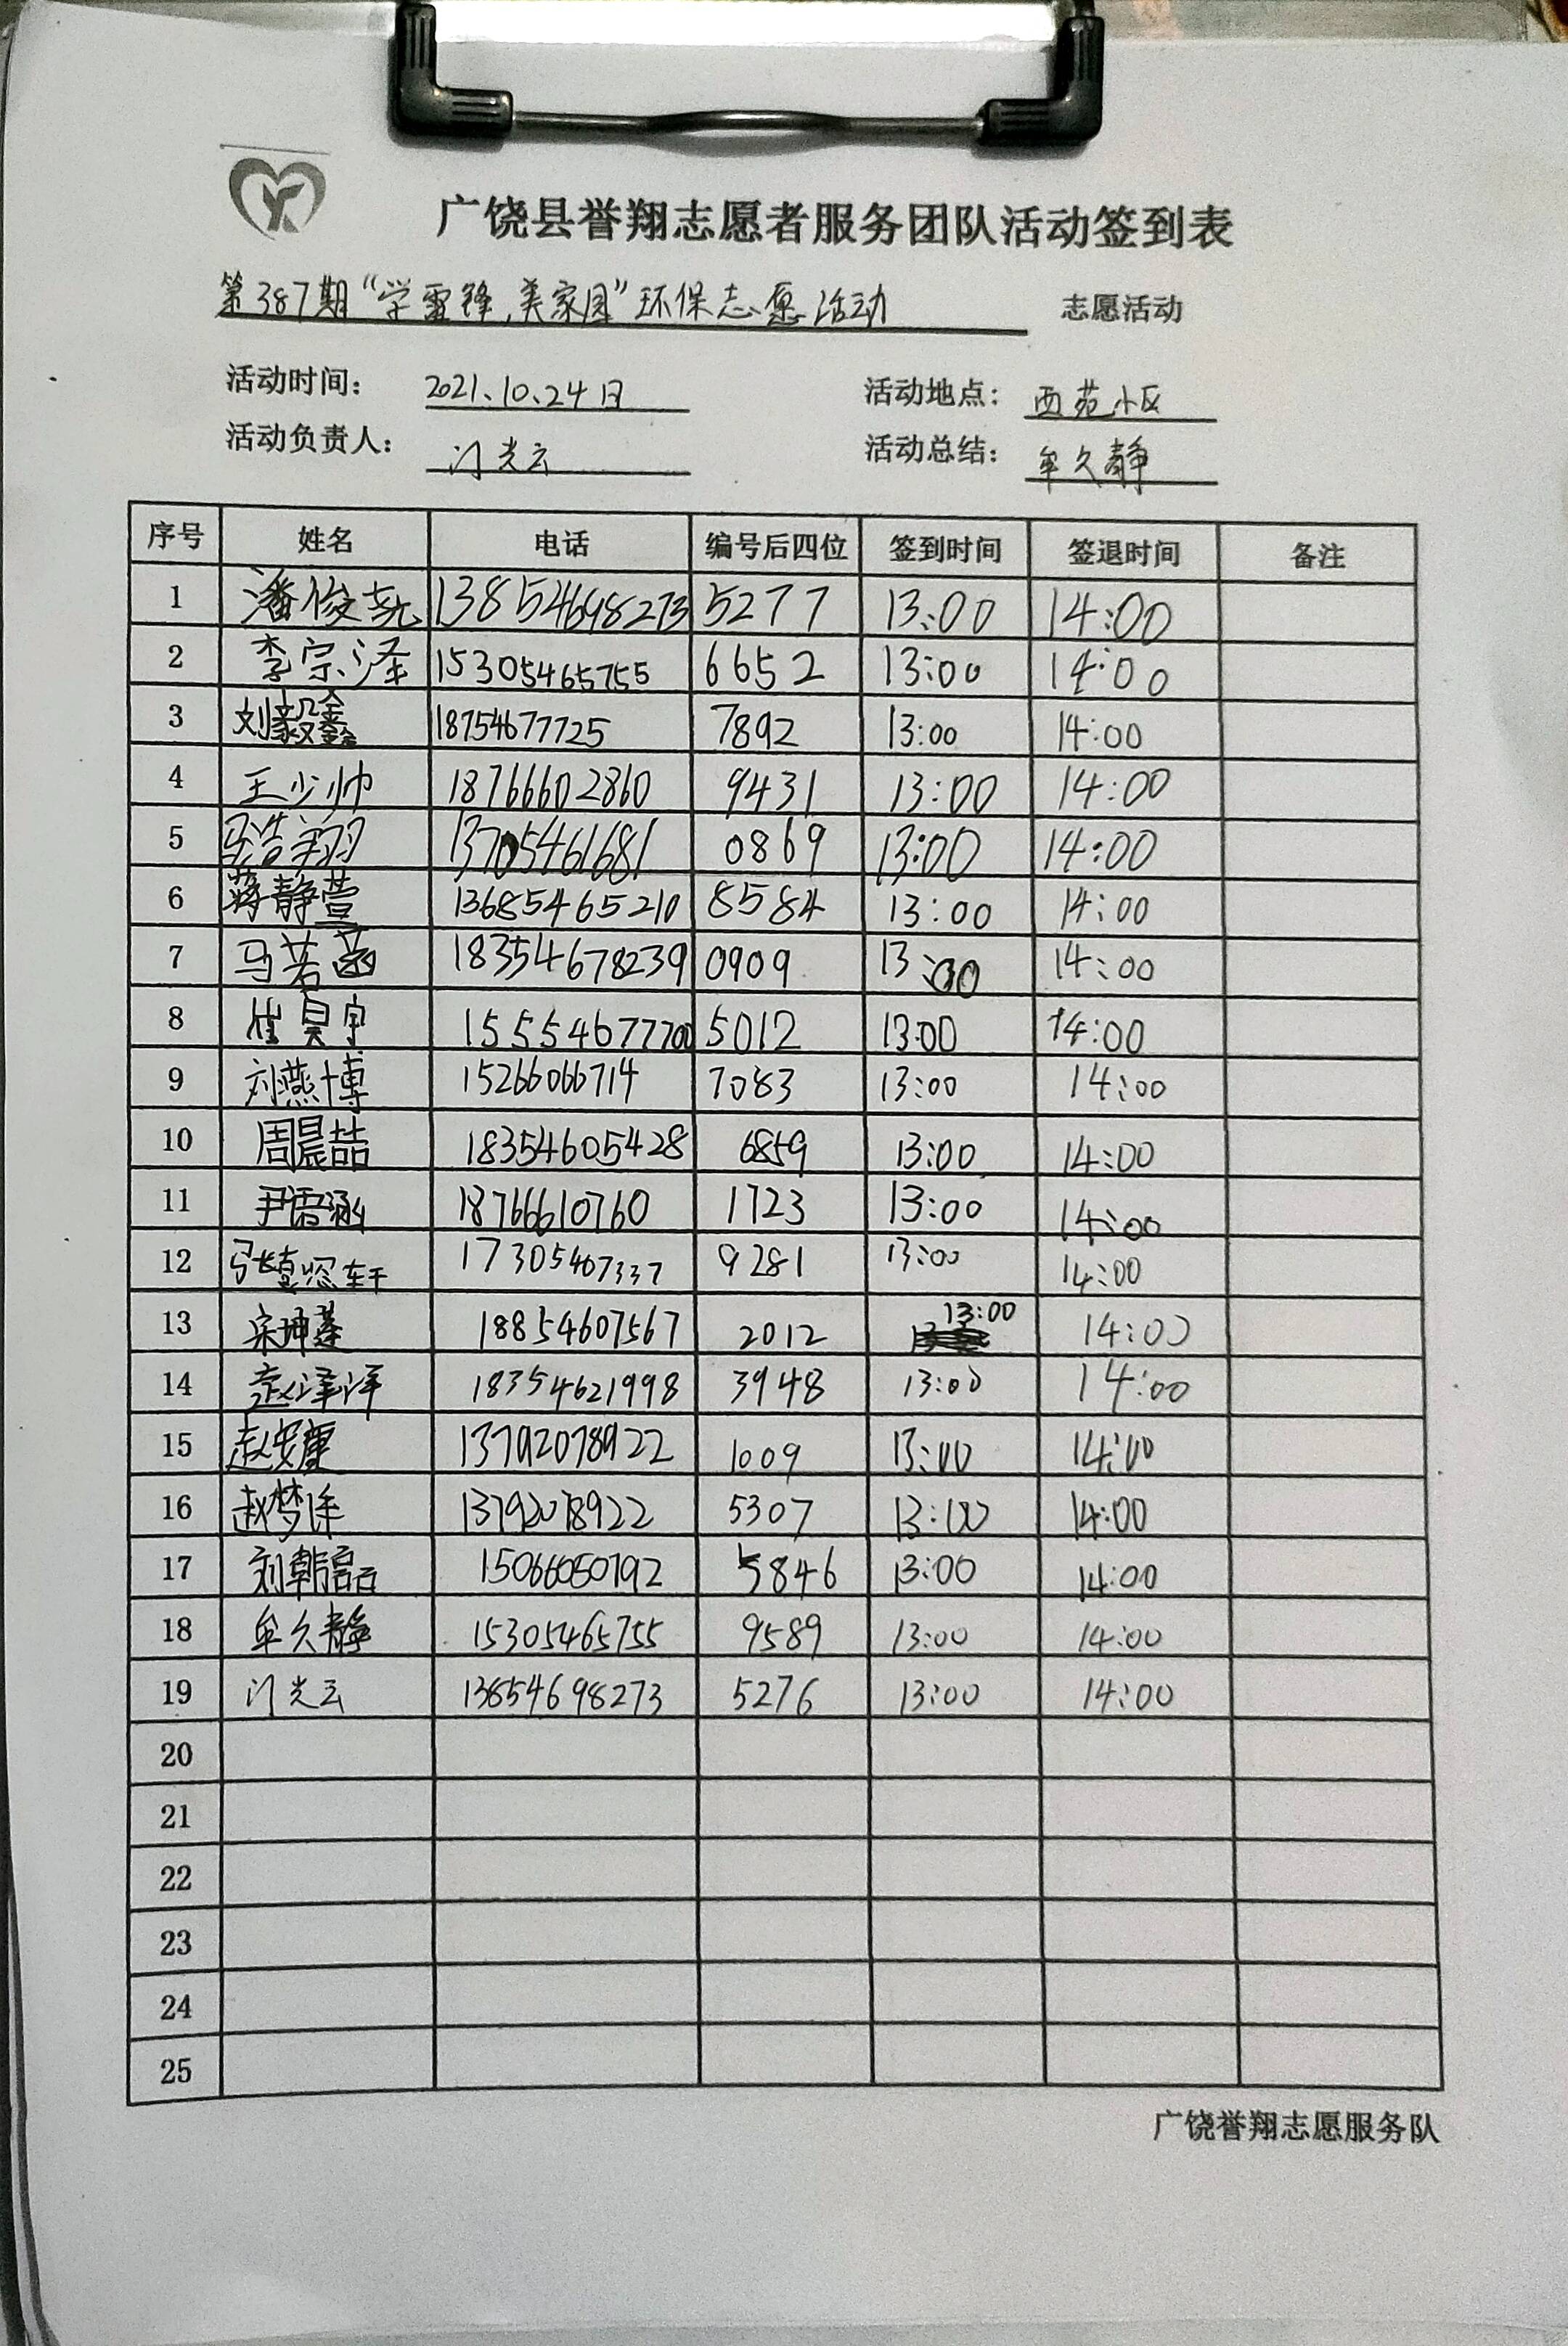 广饶县誉翔志愿者服务团队活动签到表
第387期“学雷锋,美家园”环保志愿活动 志愿活动
活动时间: 2021.10.24日 活动地点: 西苑小区
活动负责人: 门光云 活动总结: 牟久静
序号 姓名 电话 编号后四位 签到时间 签退时间 备注
1 潘俊 13854698273 5277 13:00 14:00
2 李宗泽 15305465755 6652 13:00 14:00
3 刘毅鑫 18754677725 7892 13:00 14:00
4 王少帅 18766602860 9431 13:00 14:00
5 浩翔 13705461681 0869 13:00 14:00
6 蒋静萱 13685465210 8584 13:00 14:00
7 马若菡 18354678239 0909 13:00 14:00
8 崔昊宇 15554677700 5012 13:00 14:00
9 刘燕博 15266066714 7083 13:00 14:00
10 周晨喆 18354605428 6859 13:00 14:00
11 尹语涵 18766610760 1723 13:00 14:00
12 张 轩 17305467337 9281 13:00 14:00
13 宋坤蓬 18854607567 2012 13:00 14:00
14 赵泽洋 18354621998 3948 13:00 14:00
15 赵安康 13792078922 1009 13:00 14:00
16 赵梦 13792078922 5307 13:00 14:00
17 刘韩磊 15066050792 5846 13:00 14:00
18 牟久静 15305465755 9589 13:00 14:00
19 门光云 13854698273 5276 13:00 14:00
20
21
22
23
24
25
广饶誉翔志愿服务队